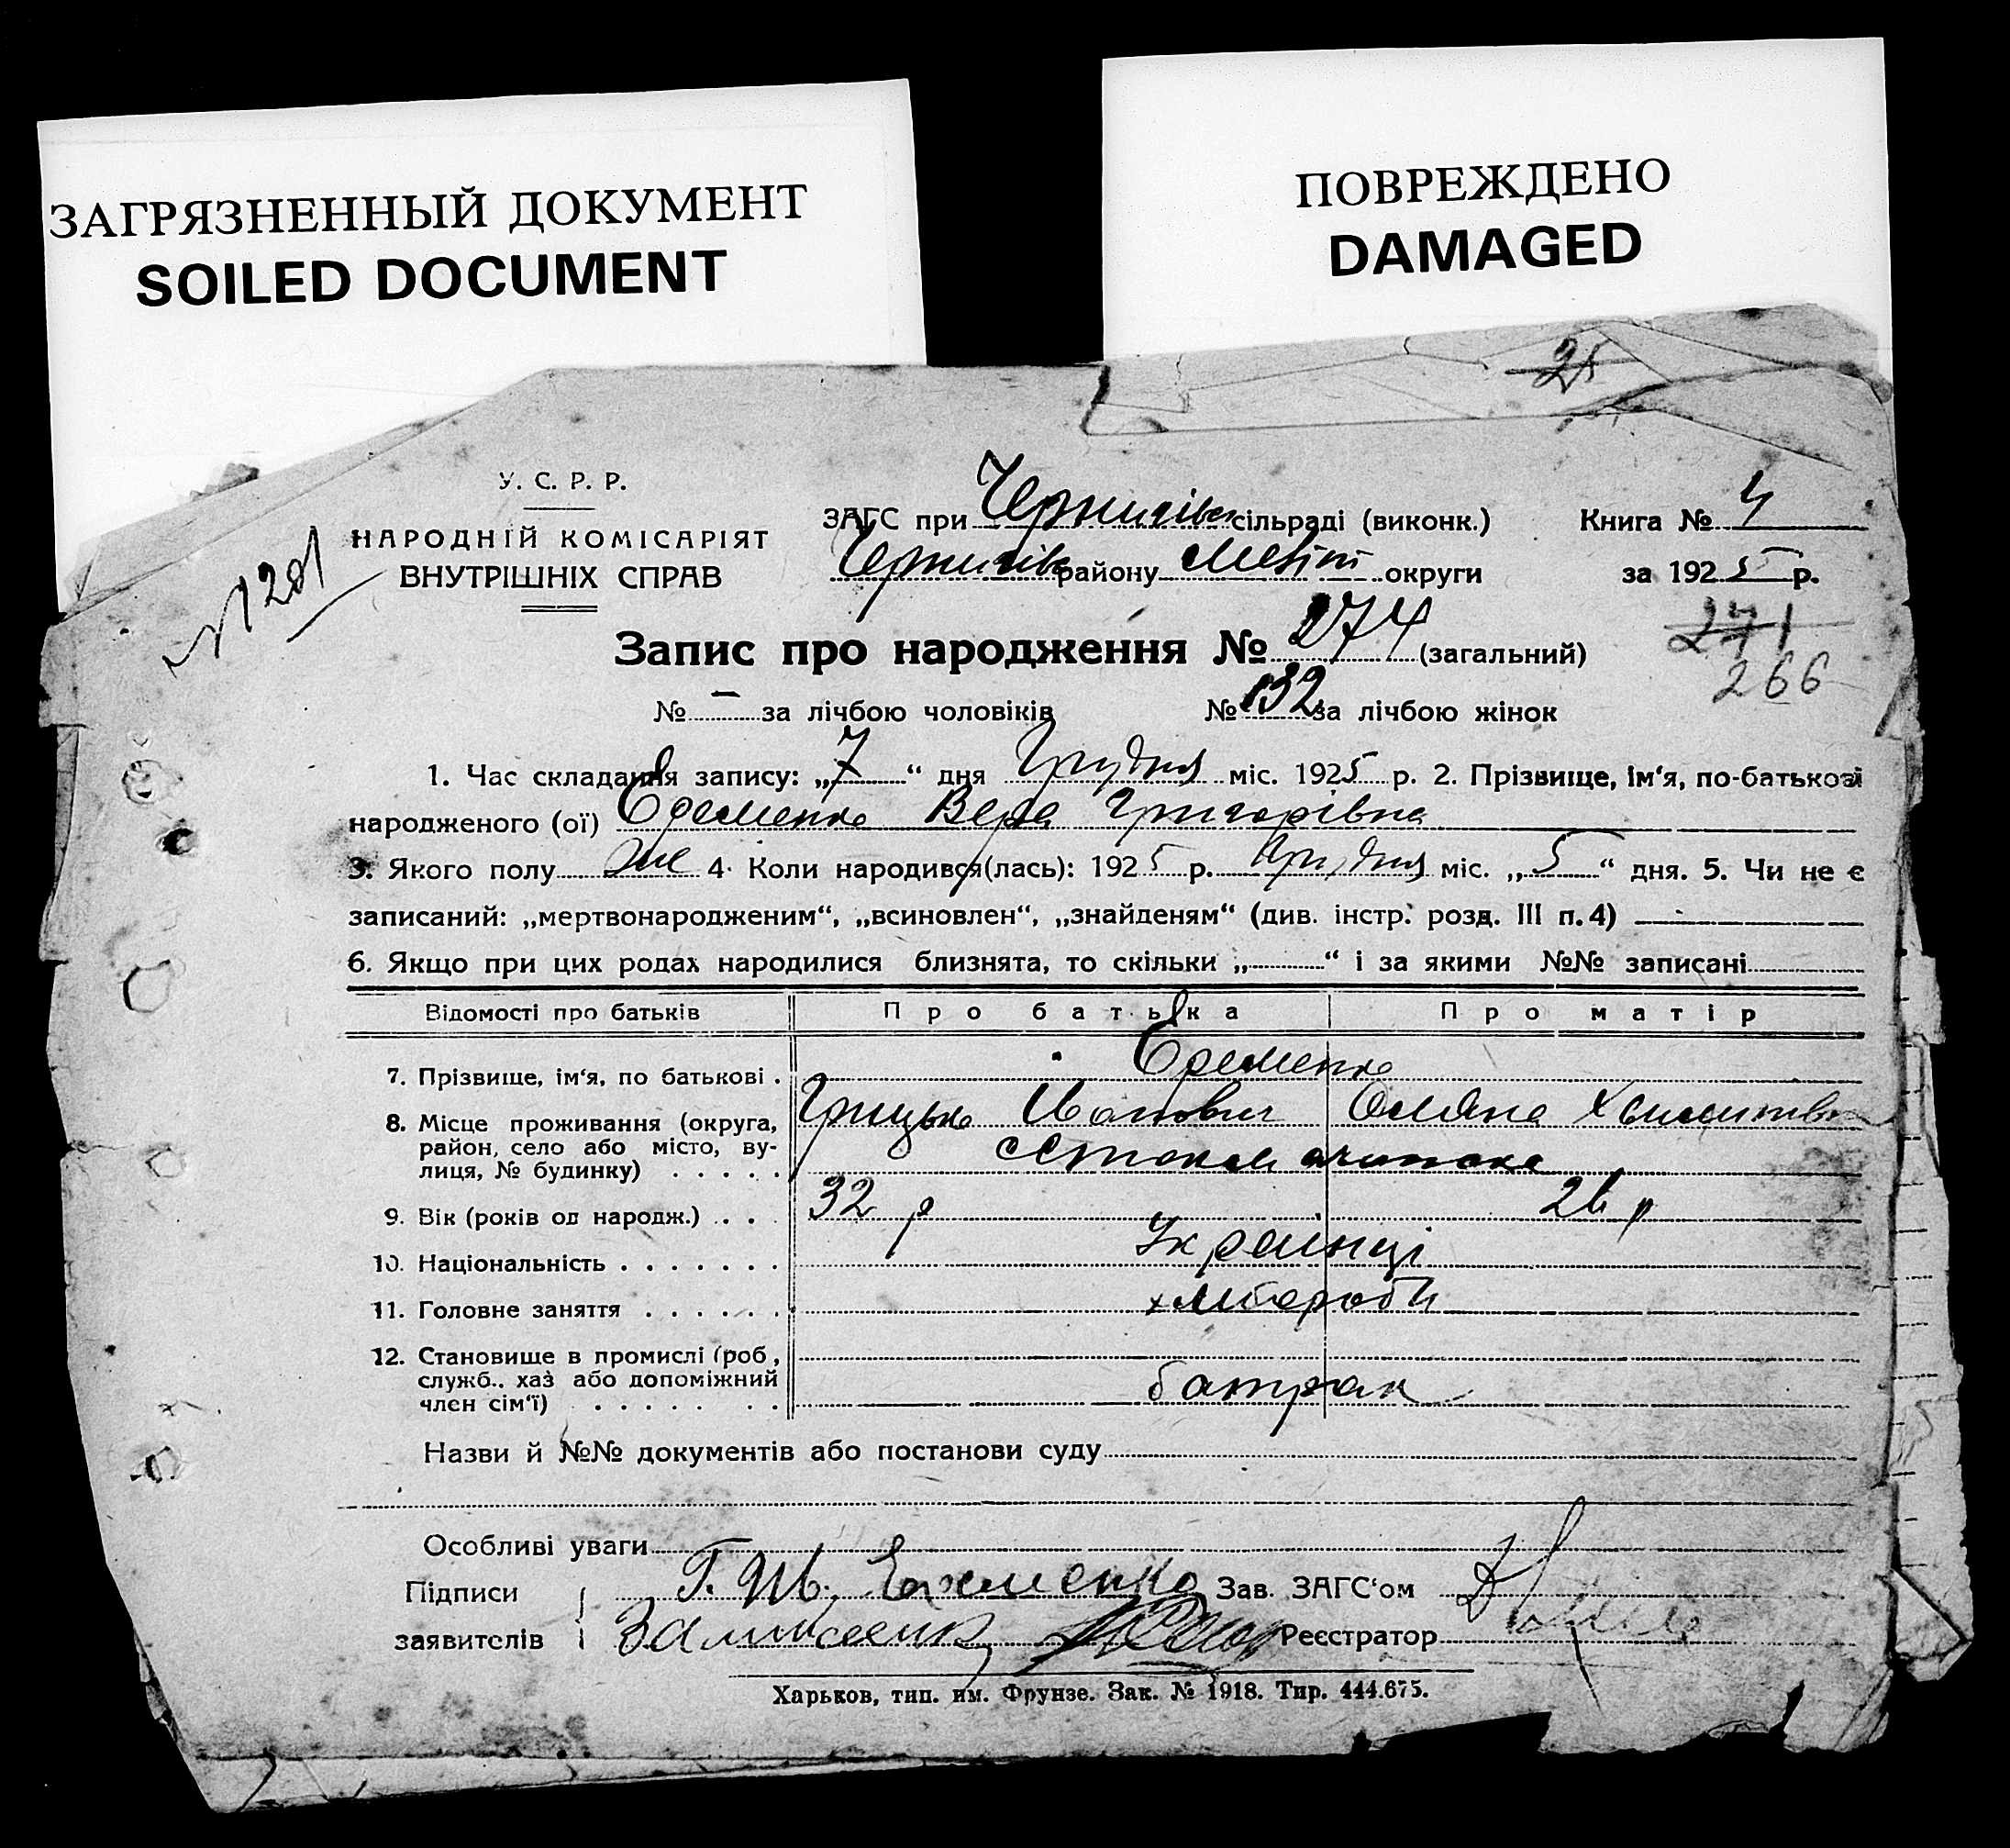 ЗАГРЯЗНЕННЫЙ ДОКУМЕНТ
SOILED DOCUMENT
ПОВРЕЖДЕНО
DAMAGED
У. С. Р. Р.
НАРОДНІЙ КОМІСАРІЯТ
ВНУТРІШНІХ СПРАВ
№ 201
ЗАГС при Чернигівск сільраді (виконк.) Книга № 4
Чернигів району Меліт округи за 1925 р.
Запис про народження № 274 (загальний)
271
266
№ — за лічбою чоловіків № 132 за лічбою жінок
1. Час складання запису: „7“ дня Грудня міс. 1925 р. 2. Прізвище, ім‘я, по-батькові
народженого (ої) Єременко Вера Григорівна
3. Якого полу же 4. Коли народився(лась): 1925 р. Грудня міс. „5“ дня. 5. Чи не є
записаний: „мертвонародженим“, „всиновлен“, „знайденям“ (див. інстр. розд. III п. 4)
6. Якщо при цих родах народилися близнята, то скільки „ “ і за якими №№ записані
Відомості про батьків Про батька Про матір
7. Прізвище, ім‘я, по батькові . Єременко
Грицько Иванович Оляна
8. Місце проживання (округа,
район, село або місто, ву-
лиця, № будинку) . . . . .
9. Вік (років од народж.) . . . 32 р 26 р
10. Національність . . . . . . . Українці
11. Головне заняття . . . . . . хлібороби
12. Становище в промислі (роб.,
служб., хаз або допоміжний
член сім‘ї) . . . . . . . батрак
Назви й №№ документів або постанови суду
Особливі уваги
Підписи Г. Ив. Єременко Зав. ЗАГС‘ом
заявителів Реєстратор
Харьков, тип. им. Фрунзе. Зак. № 1918. Тир. 444.675.